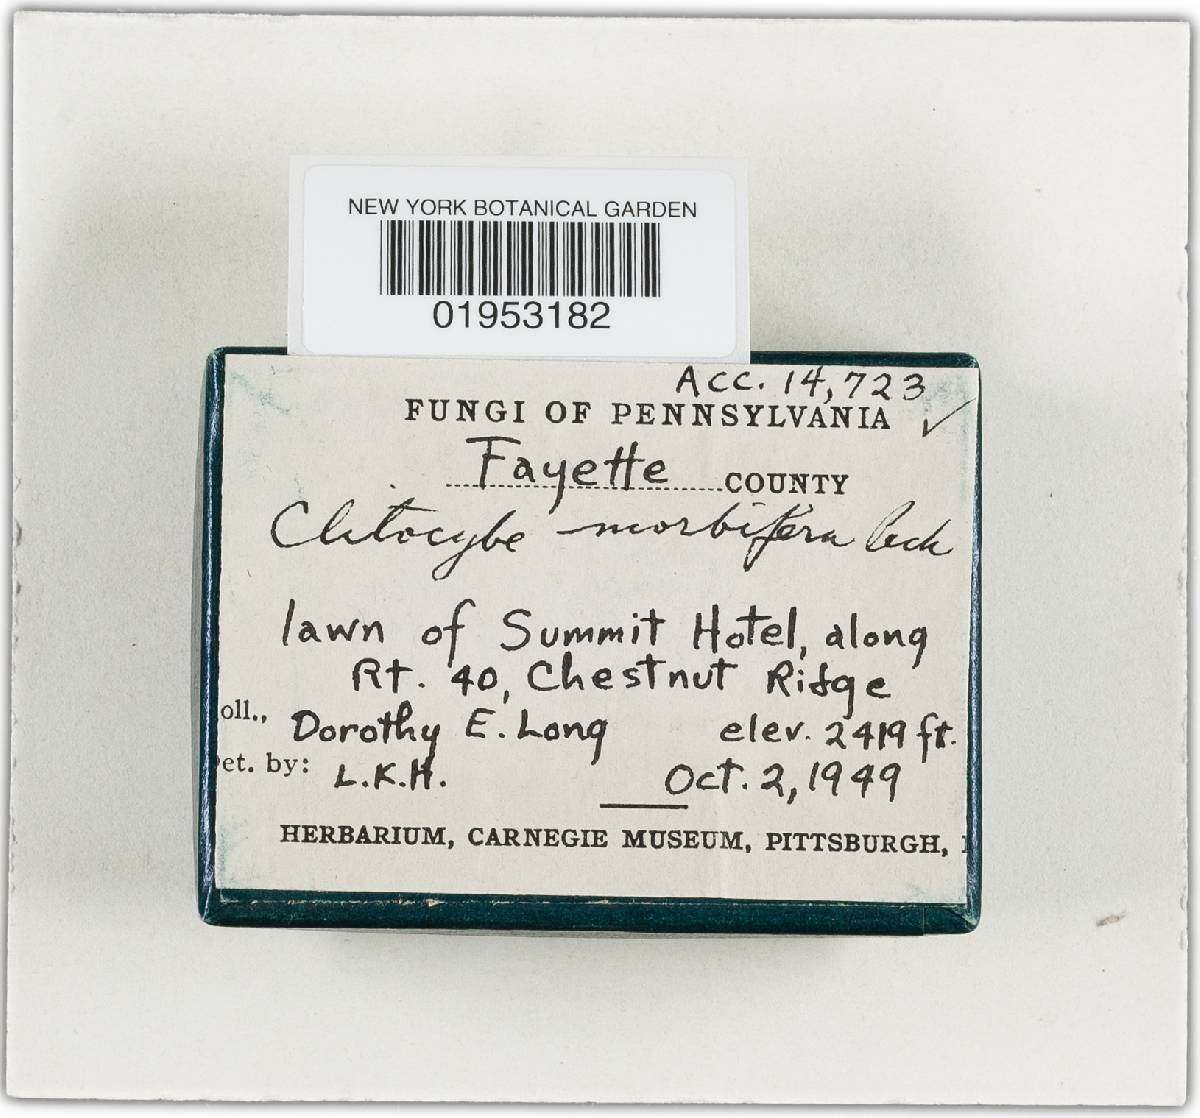 NEW YORK BOTANICAL GARDEN
01953182
Acc. 14,723
FUNGI OF PENNSYLVANIA
Fayette COUNTY
Clitocybe morbifera Peck
lawn of Summit Hotel, along
Rt. 40, Chestnut Ridge
oll., Dorothy E. Long elev. 2419 ft.
et. by: L.K.H. Oct. 2, 1949
HERBARIUM, CARNEGIE MUSEUM, PITTSBURGH,